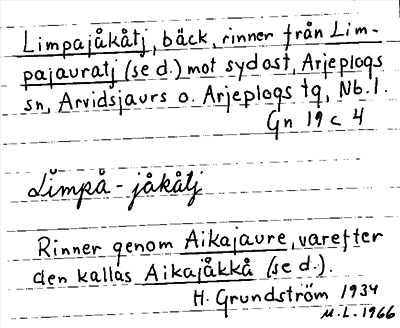 Limpajåkåtj, bäck, rinner från Lim-
pajauratj (se d.) mot sydost, Arjeplogs
sn, Arvidsjaurs o. Arjeplogs tg, Nb. l.
Gn 19 c 4
Limpå - jåkåtj
Rinner genom Aikajaure, varefter
den kallas Aikajåkkå (se d.).
H. Grundström 1934
M.L. 1966